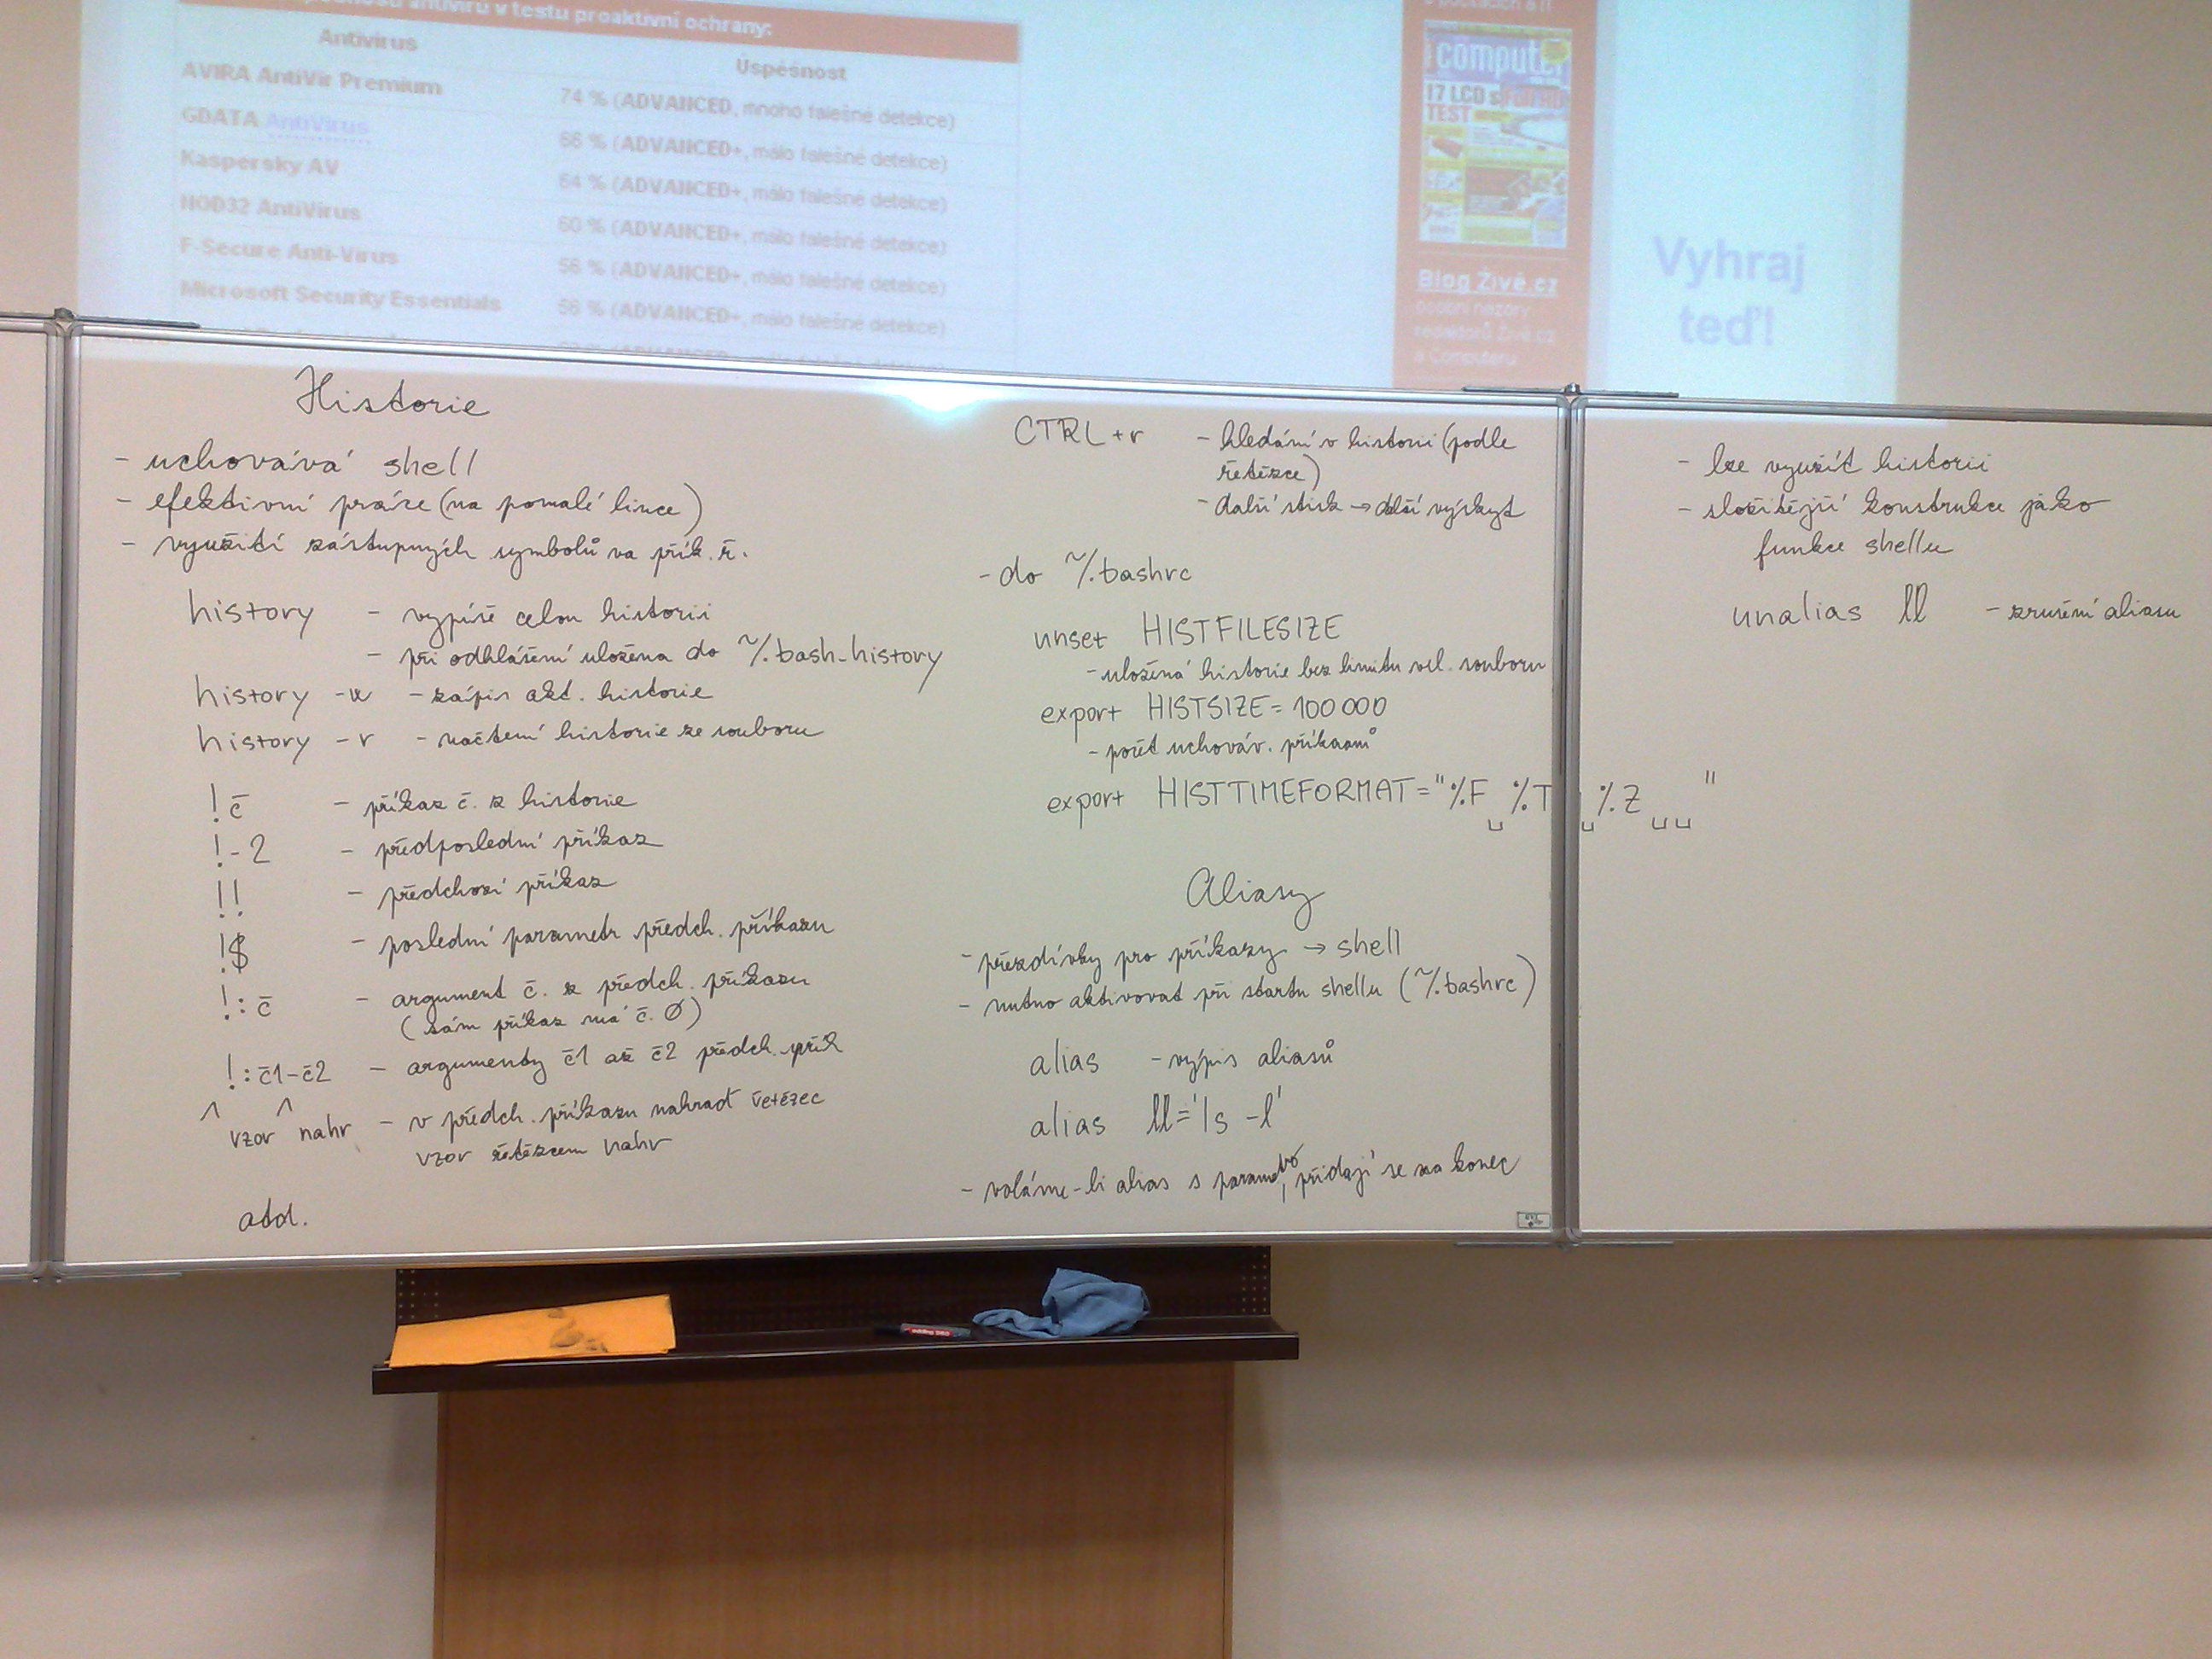 antivirů v testu proaktivní ochrany:
Antivirus
Úspěšnost
AVIRA AntiVir Premium
74 % (ADVANCED, mnoho falešné detekce)
GDATA AntiVirus
66 % (ADVANCED+, málo falešné detekce)
Kaspersky AV
64 % (ADVANCED+, málo falešné detekce)
NOD32 AntiVirus
60 % (ADVANCED+, málo falešné detekce)
F-Secure Anti-Virus
56 % (ADVANCED+, málo falešné detekce)
Microsoft Security Essentials
56 % (ADVANCED+, málo falešné detekce)
o počítačích a IT
computer
17 LCD s Full HD
TEST
Blog Živě.cz
osobní názory
redaktorů Živě.cz
a Computeru
Vyhraj
teď!
Historie
- uchovává shell
- efektivní práce (na pomalé lince)
- využití zástupných symbolů na přík. ř.
history - vypíše celou historii
- při odhlášení uložena do ~/.bash_history
history -w - zápis akt. historie
history -r - načtení historie ze souboru
!č - příkaz č. z historie
!-2 - předposlední příkaz
!! - předchozí příkaz
!$ - poslední parametr předch. příkazu
!:č - argument č. z předch. příkazu
(sám příkaz má č. 0)
!:č1-č2 - argumenty č1 až č2 předch. přík
^vzor^nahr - v předch. příkazu nahraď řetězec
vzor řetězcem nahr
atd.
CTRL+r - hledání v historii (podle
řetězce)
- další stisk → další výskyt
- do ~/.bashrc
unset HISTFILESIZE
- uložená historie bez limitu vel. souboru
export HISTSIZE=100000
- počet uchováv. příkazů
export HISTTIMEFORMAT="%F␣%T␣%Z␣␣"
Aliasy
- přezdívky pro příkazy → shell
- nutno aktivovat při startu shellu (~/.bashrc)
alias - výpis aliasů
alias ll='ls -l'
- voláme-li alias s parametry, přidají se na konec
- lze využít historii
- složitější konstrukce jako
funkce shellu
unalias ll - zrušení aliasu